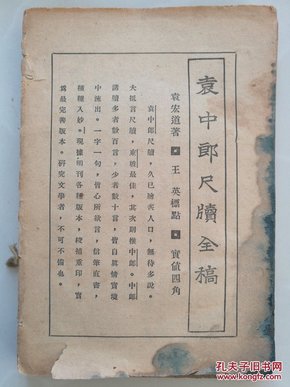 袁中郎尺牘全稿
袁宏道著 王英標點 實値四角
袁中郎尺牘，久已膾炙人口，無待多說。
大抵言尺牘，東坡最佳，其次則推中郎。中郎
諸牘多者數百言，少者數十言，皆自眞情實境
中流出。一字一句，皆心所欲言，信筆直書，
種種入妙。現據明刊各種版本，校補重印，實
爲最完善版本。研究文學者，不可不備也。
孔夫子旧书网